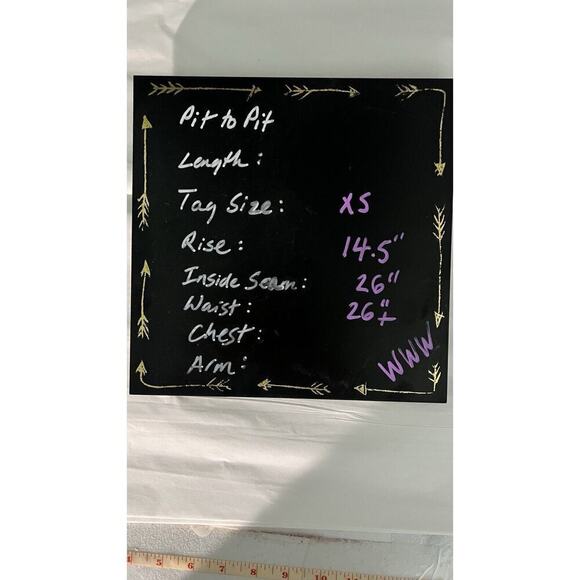 Pit to Pit
Length:
Tag Size: XS
Rise: 14.5"
Inside Seam: 26"
Waist: 26"+
Chest:
Arm:
WWW
1 2 3 4 5 6 7 8 9 10